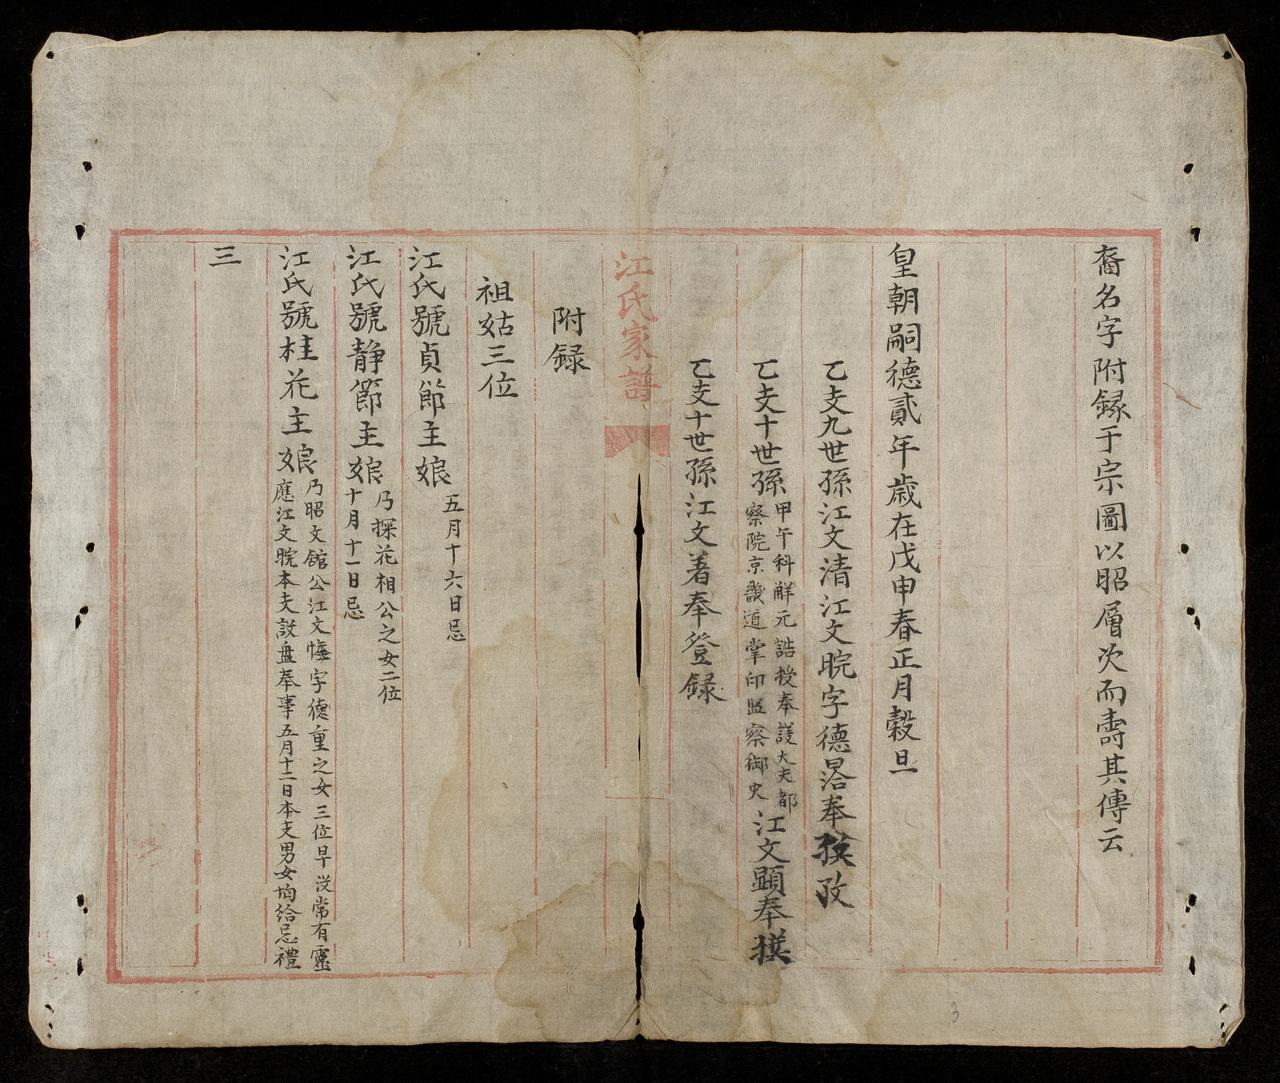 裔名字附録于宗圖以昭層次而壽其傳云
皇朝嗣德貳年歳在戊申春正月穀旦
乙支九世孫江文清江文晥字德㫧奉撰攷
乙支十世孫甲午科解元誥授奉議大夫都
察院京畿道掌印監察御史江文顕奉撰
乙支十世孫江文著奉登録
江氏家譜
附録
祖姑三位
江氏號貞節主娘五月十六日忌
江氏號静節主娘乃探花相公之女二位
十月十一日忌
江氏號桂花主娘乃昭文舘公江文㦖字德重之女三位早没常有靈
應江文晥本支設盘奉事五月十二日本支男女均給忌禮
三
3